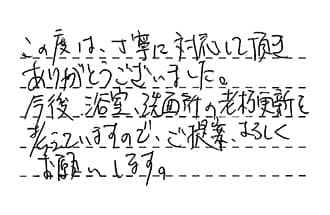 この度は、丁寧に対応して頂き
ありがとうございました。
今後、浴室、洗面所の老朽更新を
考えていますので、ご提案、よろしく
お願いします。